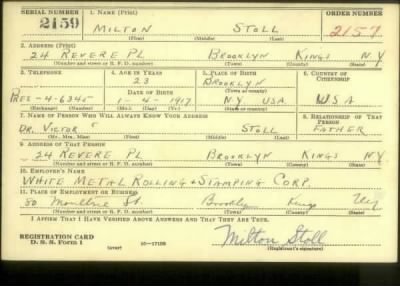 SERIAL NUMBER 1. NAME (Print) ORDER NUMBER
2159 MILTON STOLL 2157
(First) (Middle) (Last)
2. ADDRESS (Print)
24 REVERE PL BROOKLYN KINGS N.Y
(Number and street or R. F. D. number) (Town) (County) (State)
3. TELEPHONE 4. AGE IN YEARS 5. PLACE OF BIRTH 6. COUNTRY OF CITIZENSHIP
23 BROOKLYN
DATE OF BIRTH (Town or county)
PRES-4-6345 1-4-1917 N.Y USA. USA
(Exchange) (Number) (Mo.) (Day) (Yr.) (State or country)
7. NAME OF PERSON WHO WILL ALWAYS KNOW YOUR ADDRESS 8. RELATIONSHIP OF THAT PERSON
DR. VICTOR STOLL FATHER
(Mr., Mrs., Miss) (First) (Middle) (Last)
9. ADDRESS OF THAT PERSON
24 REVERE PL BROOKLYN KINGS NY
(Number and street or R. F. D. number) (Town) (County) (State)
10. EMPLOYER'S NAME
WHITE METAL ROLLING & STAMPING CORP.
11. PLACE OF EMPLOYMENT OR BUSINESS
80 Moultrie St. Brooklyn Kings N.Y
(Number and street or R. F. D. number) (Town) (County) (State)
I AFFIRM THAT I HAVE VERIFIED ABOVE ANSWERS AND THAT THEY ARE TRUE.
REGISTRATION CARD Milton Stoll
D. S. S. Form 1 (over) 16-17105 (Registrant's signature)